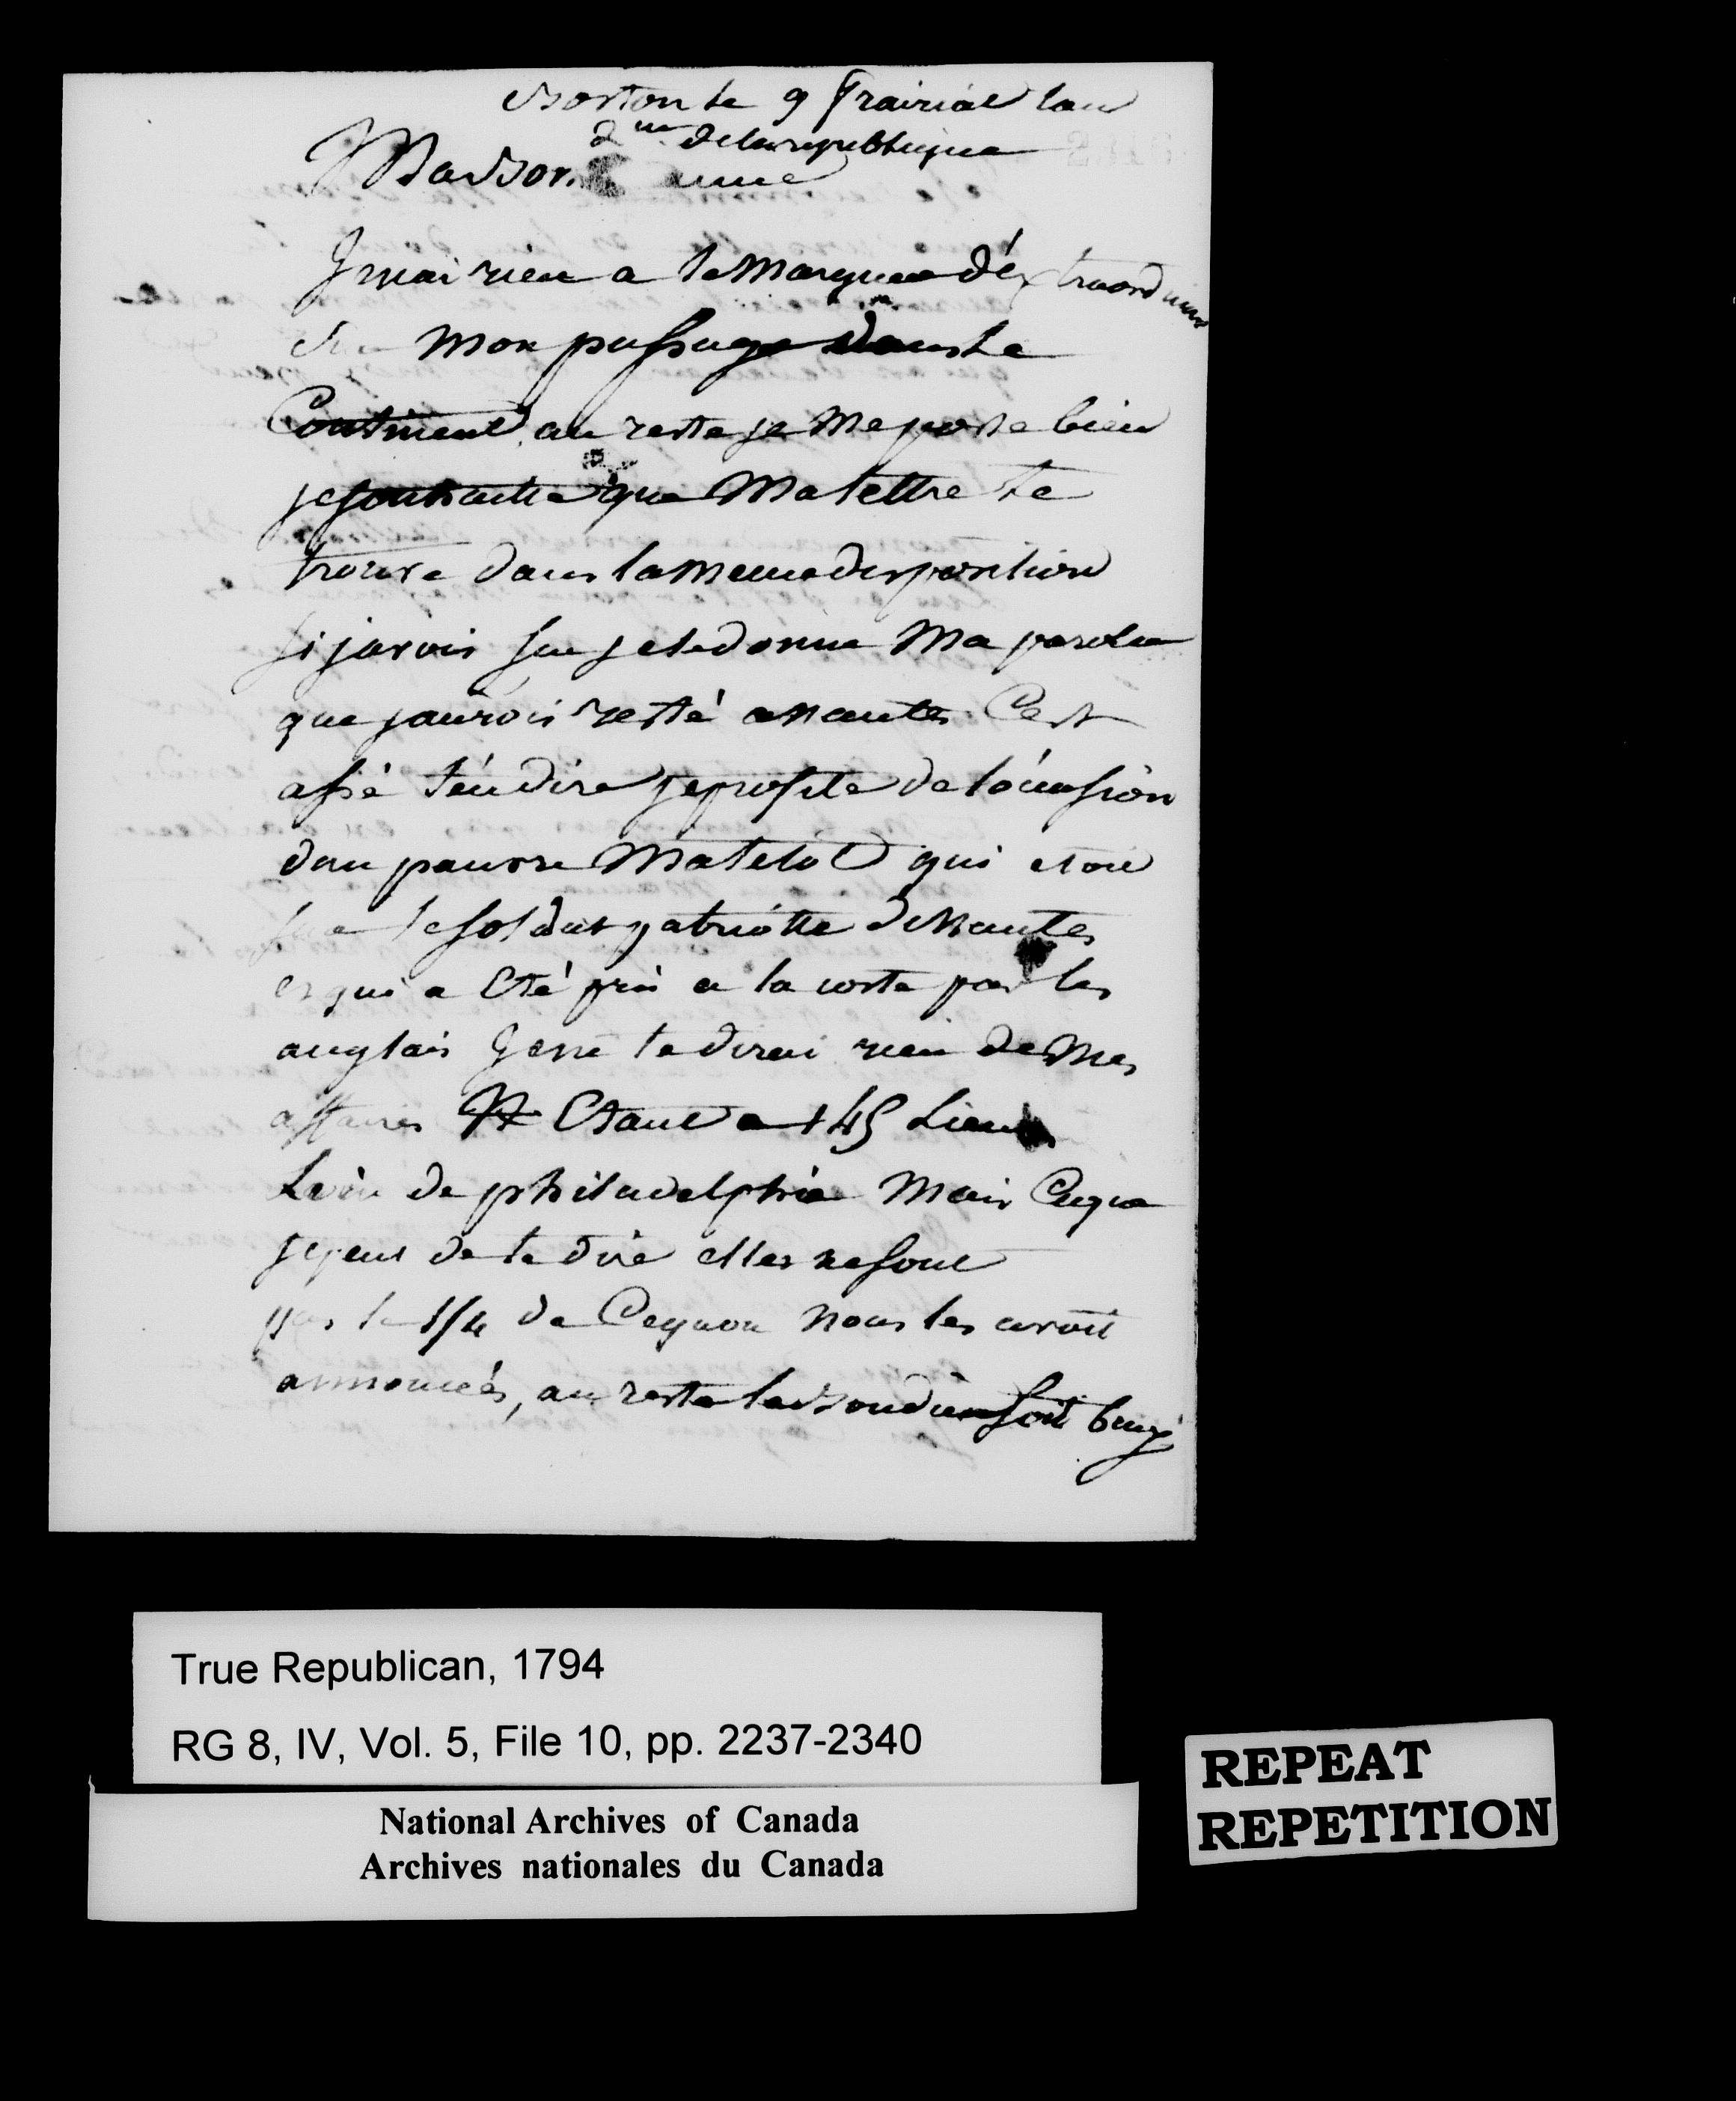 Boston le 9 prairial lan
2me delarepublique
Ma Bonne amie
Jenai rien a te Marquer déxtraordinaire
sur mon passage dans le
Continent, au reste je me porte bien
jesouhaitte que Ma lettre te
trouve dans lameme disposition
si javois su jetedonne Ma parolle
que jaurois resté anantes Cest
assé ten dire jeprofite delocassion
dun pauvre Matelot qui etoit
sur lesoldat patriotte deNantes
et qui a été pris a la coste par les
anglais Jene te dirai rien de Mes
affaires Etant a 145 Lieus
Loin de philadelphie Mais Ceque
jepeus de te dire elles nesont
pas le 1/4 de Cequon nous les avoit
annoncés, au reste le Bondieu soit beny
True Republican, 1794
RG 8, IV, Vol. 5, File 10, pp. 2237-2340
National Archives of Canada
Archives nationales du Canada
REPEAT
REPETITION